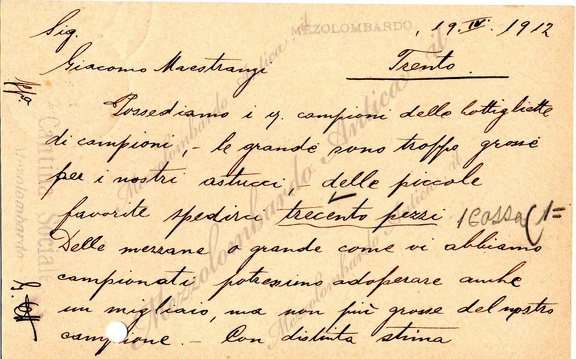 MEZOLOMBARDO
, 19 IV. 1912
Sig.
Giacomo Maestranzi Trento
Possediamo i v. campioni delle bottigliette
di campioni, - le grande sono troppo grosse
per i nostri astucci, - delle piccole
favorite spedirci trecento pezzi 1 Cassa (1=
Delle mezzane a grande come vi abbiamo
campionati potressimo adoperare anche
un migliaio, ma non più grosse del nostro
campione. - Con distinta stima
Cantina Sociale
Mezolombardo
Mezzolombardo Antica.it